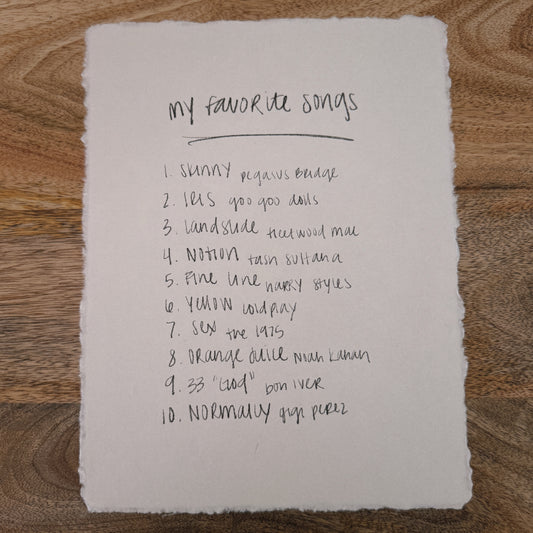 my favorite songs
1. Skinny pegasus Bridge
2. IRIS goo goo dolls
3. Landslide fleetwood mac
4. Notion tash sultana
5. Fine Line harry styles
6. Yellow coldplay
7. Sex the 1975
8. Orange Juice Noah Kahan
9. 33 "God" bon iver
10. Normally gigi perez